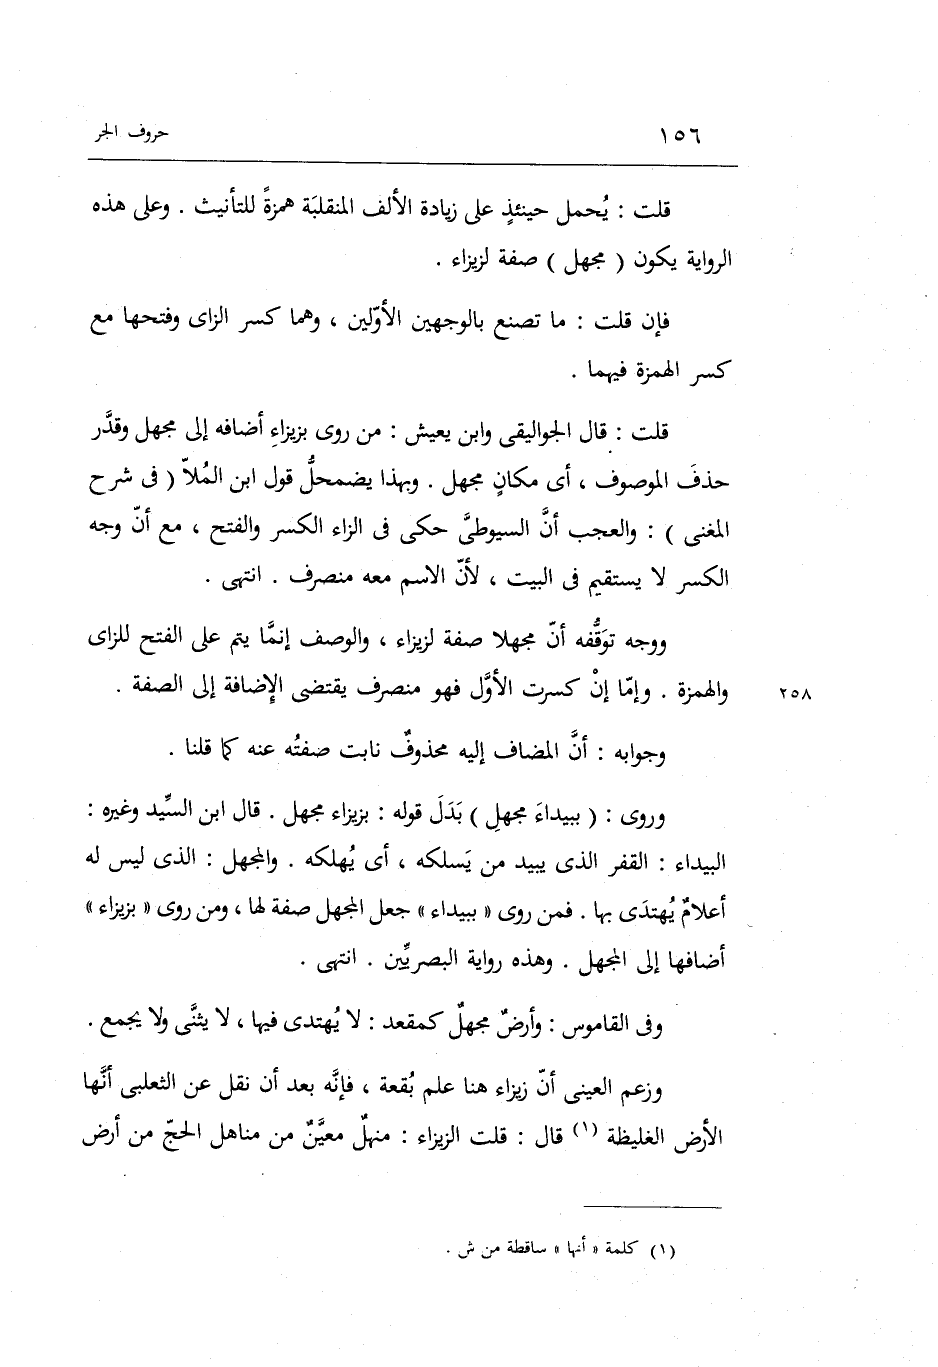 ١٥٦ حروف الجر
قلت : يُحمل حينئذٍ على زيادة الألف المنقلبَة همزةً للتأنيث . وعلى هذه
الرواية يكون ( مجهل ) صفة لزيزاء .
فإن قلت : ما تصنع بالوجهين الأوّلين ، وهما كسر الزاى وفتحها مع
كسر الهمزة فيهما .
قلت : قال الجواليقى وابن يعيش : من روى بزيزاءِ أضافه إلى مجهل وقدَّر
حذفَ الموصوف ، أى مكانٍ مجهل . وبهذا يضمحلُّ قول ابن المُلاّ ( فى شرح
المغنى ) : والعجب أنَّ السيوطىَّ حكى فى الزاء الكسر والفتح ، مع أنّ وجه
الكسر لا يستقيم فى البيت ، لأنّ الاسم معه منصرف . انتهى .
ووجه توَقُّفه أنّ مجهلا صفة لزيزاء ، والوصف إنمَّا يتم على الفتح للزاى
والهمزة . وإمّا إنْ كسرت الأوَّل فهو منصرف يقتضى الإِضافة إلى الصفة . ٢٥٨
وجوابه : أنَّ المضاف إليه محذوفٌ نابت صفتُه عنه كما قلنا .
وروى : ( ببيداءَ مجهلِ ) بَدَلَ قوله : بزيزاء مجهل . قال ابن السِّيد وغيره :
البيداء : القفر الذى يبيد من يَسلكه ، أى يُهلكه . والمجهل : الذى ليس له
أعلامٌ يُهتدَى بها . فمن روى « ببيداء » جعل المجهل صفة لها ، ومن روى « بزيزاء »
أضافها إلى المجهل . وهذه رواية البصريِّين . انتهى .
وفى القاموس : وأرضٌ مجهلٌ كمقعد : لا يُهتدى فيها ، لا يثنَّى ولا يجمع .
وزعم العينى أنّ زيزاء هنا علم بُقعة ، فإنَّه بعد أن نقل عن الثعلبى أنَّها
الأرض الغليظة (١) قال : قلت الزيزاء : منهلٌ معيَّنٌ من مناهل الحجّ من أرض
(١) كلمة « أنها » ساقطة من ش .